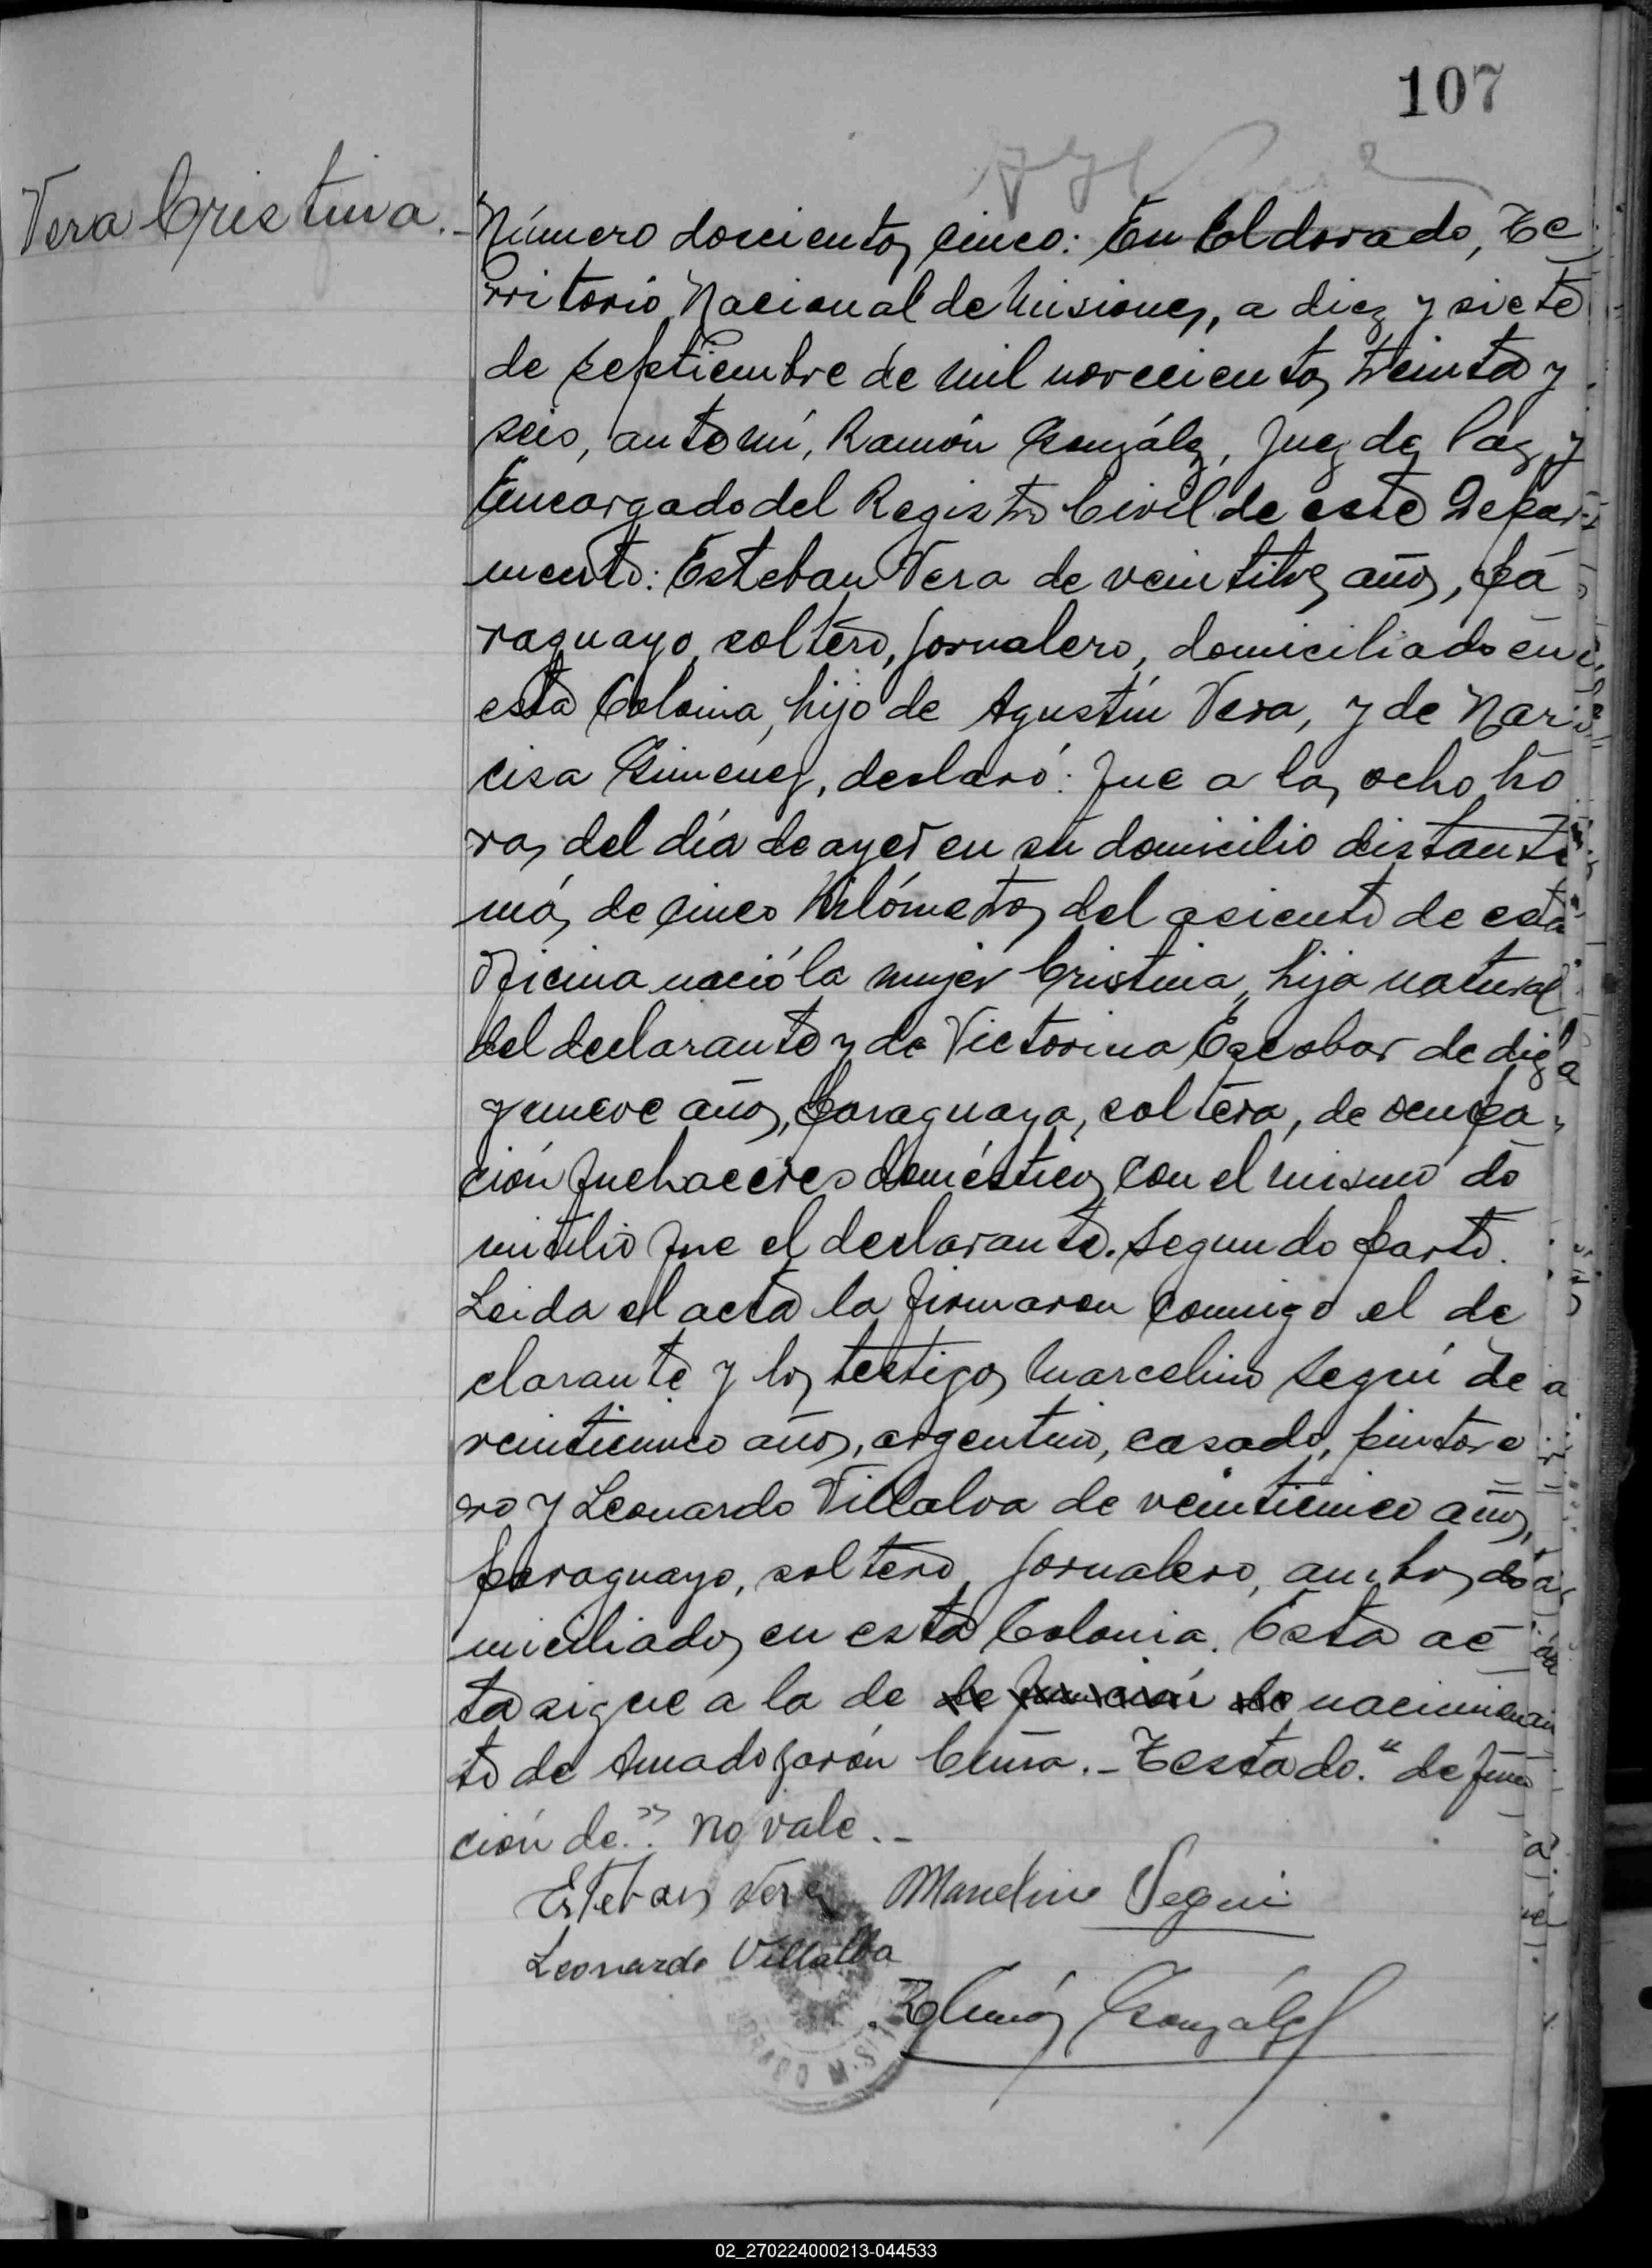 107
Vera Cristina.-
Número doscientos cinco: En Eldorado, Te
rritorio Nacional de Misiones, a diez y siete
de septiembre de mil novecientos treinta y
seis, ante mí, Ramón González, Juez de Paz y
Encargado del Registro Civil de este Depar
mento: Esteban Vera de veintitres años, pa
raguayo, soltero, jornalero, domiciliado en
esta Colonia, hijo de Agustín Vera, y de Nar
cisa Giménez, declaró: Que a las ocho ho
ras del día de ayer en su domicilio distante
más de cinco kilómetros del asiento de esta
Oficina nació la mujer Cristina, hija natural
del declarante y de Victorina Escobar de diez
y nueve años, paraguaya, soltera, de ocupa
ción quehaceres domésticos con el mismo do
micilio que el declarante. Segundo parto.
Leida el acta la firmaron conmigo el de
clarante y los testigos Marcelino Seguí de
veinticinco años, argentino, casado,
ro y Leonardo Villalva de veinticinco años,
paraguayo, soltero, jornalero, ambos do
miciliados en esta Colonia. Esta ac
ta sigue a la de de función de nacimien
to de Amado Cuña.- Testado: "de fun
ción de": no vale.-
Esteban Vera Marcelino Segui
Leonardo Villalba
Ramón González